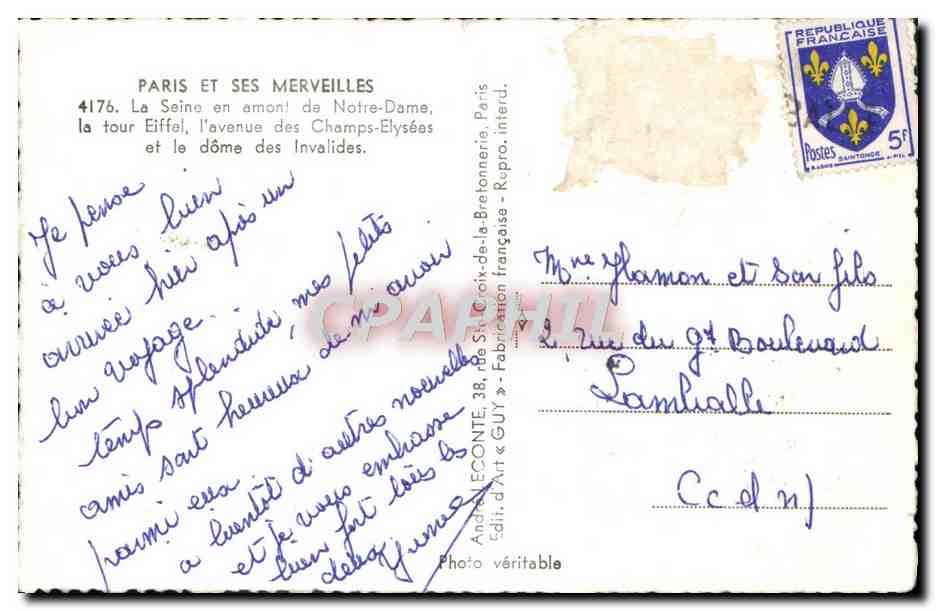 PARIS ET SES MERVEILLES
4176. La Seine en amont de Notre-Dame,
la tour Eiffel, l'avenue des Champs-Elysées
et le dôme des Invalides.
Je pense
à vous bien
arrivée hier après un
bon voyage..
temps splendide, mes petits
amis sont heureux de m'avoir
parmi eux.
a bientôt d'autres nouvelles
et je vous embrasse
bien fort tous les
deux
André LECONTE, 38, rue Ste-Croix-de-la-Bretonnerie, Paris
Edit. d'Art « GUY » - Fabrication française - Repro. interd.
Photo véritable
REPUBLIQUE
FRANCAISE
5F
Postes
SAINTONGE
Mme Hamon et son fils
2, rue du gd Boulevard
Lamballe
(c d n)
CPAPHIL